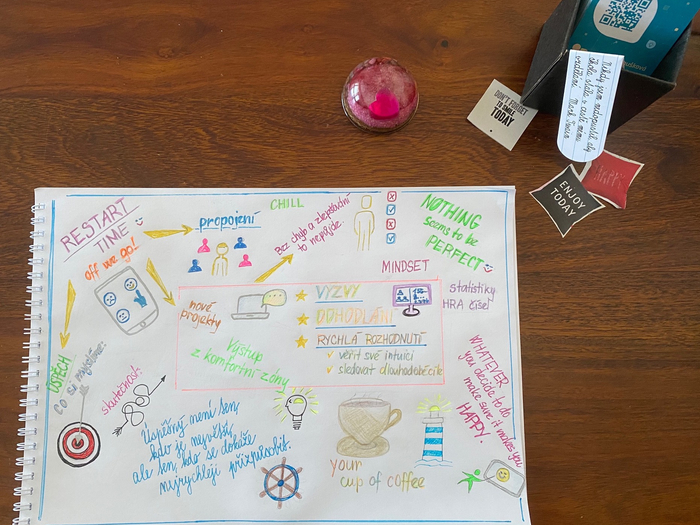 DON'T FORGET
TO SMILE
TODAY
Nikdy jsem nedopustil, aby
škola stála v cestě mému
vzdělání. Mark Twain
ENJOY
TODAY
RESTART
TIME
off we go!
propojení
CHILL
Bez chyb a zlepšování
to nepůjde.
NOTHING
seems to be
PERFECT
MINDSET
nové
projekty
VÝZVY
ODHODLÁNÍ
RYCHLÁ ROZHODNUTÍ
věřit své intuici
sledovat dlouhodobé cíle
statistiky
HRA čísel
Výstup
z komfortní zóny
ÚSPĚCH
co si myslíme:
skutečnost:
Úspěšný není ten,
kdo je největší,
ale ten, kdo se dokáže
nejrychleji přizpůsobit.
your
cup of coffee
WHATEVER
you decide to do
make sure it makes you
HAPPY.